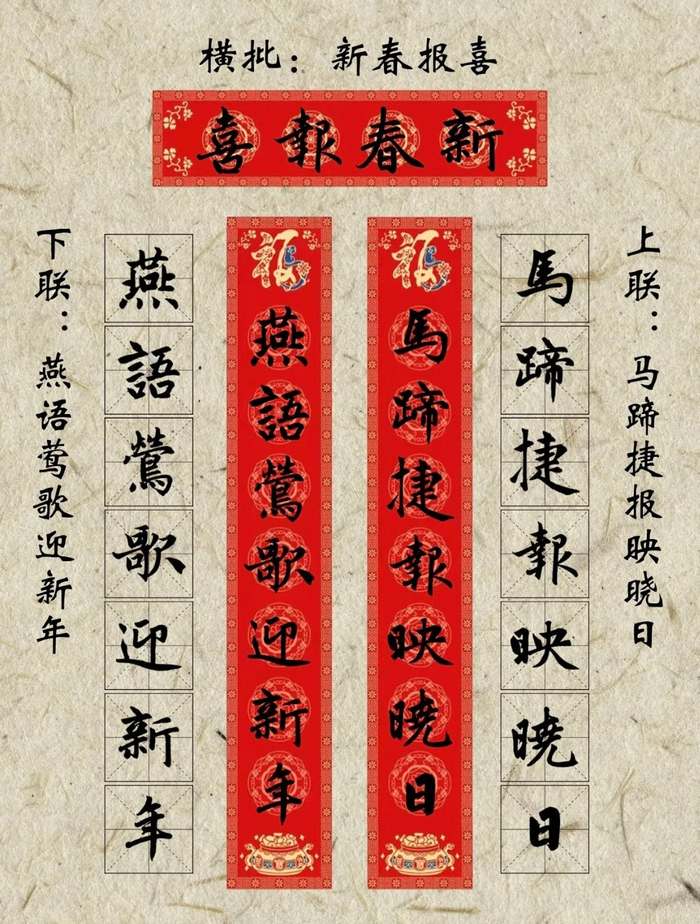 横批：新春报喜
喜報春新
上联：马蹄捷报映晓日
馬蹄捷報映曉日
福
馬蹄捷報映曉日
福
燕語鶯歌迎新年
燕語鶯歌迎新年
下联：燕语莺歌迎新年